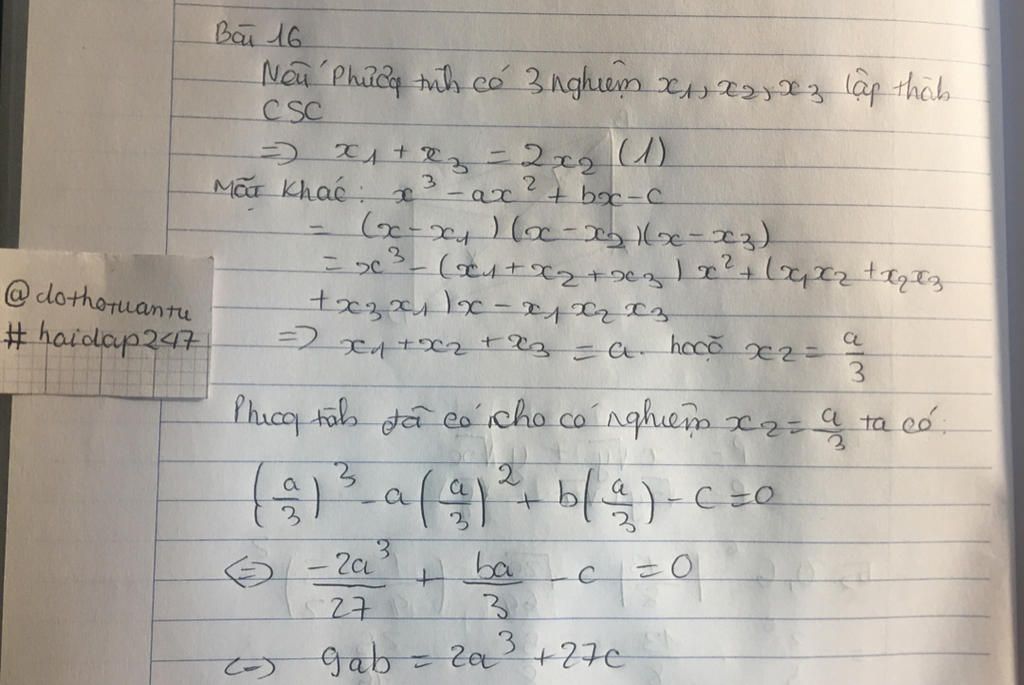 Bài 16
Nếu Phương trình có 3 nghiệm x1, x2, x3 lập thành
CSC
=> x1 + x3 = 2x2 (1)
Mặt Khác: x³ - ax² + bx - c
= (x - x1)(x - x2)(x - x3)
= x³ - (x1 + x2 + x3) x² + (x1x2 + x2x3
+ x3x1)x - x1x2x3
=> x1 + x2 + x3 = a. hoặc x2 = a/3
@dothotuantu
#hoidap247
Phương trình đã có cho có nghiệm x2 = a/3 ta có:
(a/3)³ - a(a/3)² + b(a/3) - c = 0
<=> -2a³/27 + ba/3 - c = 0
<=> 9ab = 2a³ + 27c